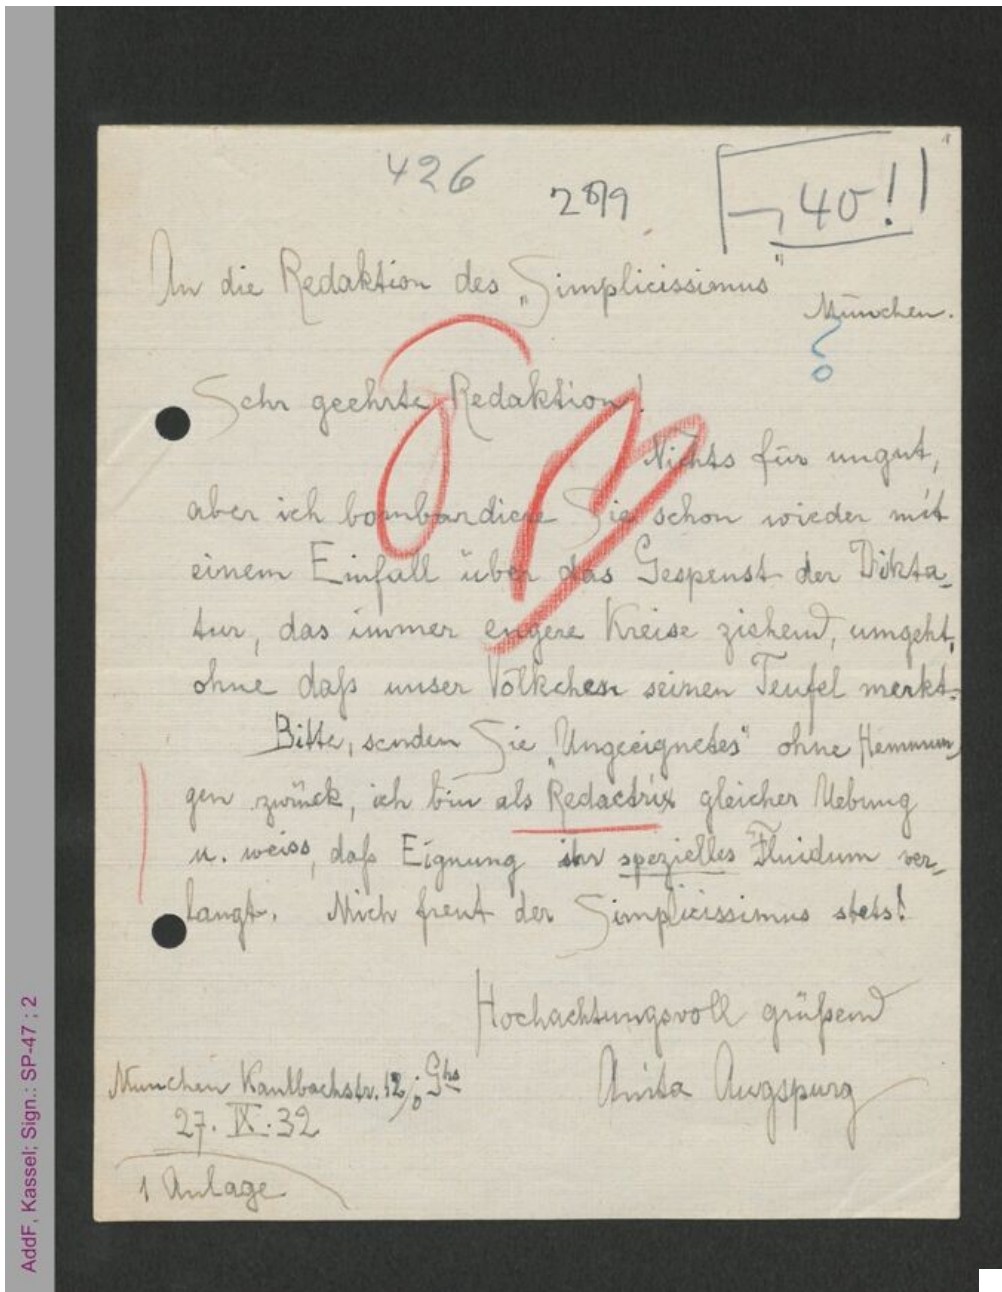 426
28/9
40!
An die Redaktion des „Simplicissimus"
München.
Sehr geehrte Redaktion!
Nichts für ungut,
aber ich bombardiere Sie schon wieder mit
einem Einfall über das Gespenst der Dikta-
tur, das immer engere Kreise ziehend, umgeht,
ohne daß unser Völkchen seinen Teufel merkt.
Bitte, senden Sie „Ungeeignetes" ohne Hemmun-
gen zurück, ich bin als Redactrix gleicher Uebung
u. weiss, daß Eignung ihr spezielles Fluidum ver-
langt. Mich freut der Simplicissimus stets!
Hochachtungsvoll grüßend
Anita Augspurg
München Kaulbachstr. 12/0 Ghs
27. IX. 32
1 Anlage
AddF, Kassel; Sign.: SP-47 ; 2